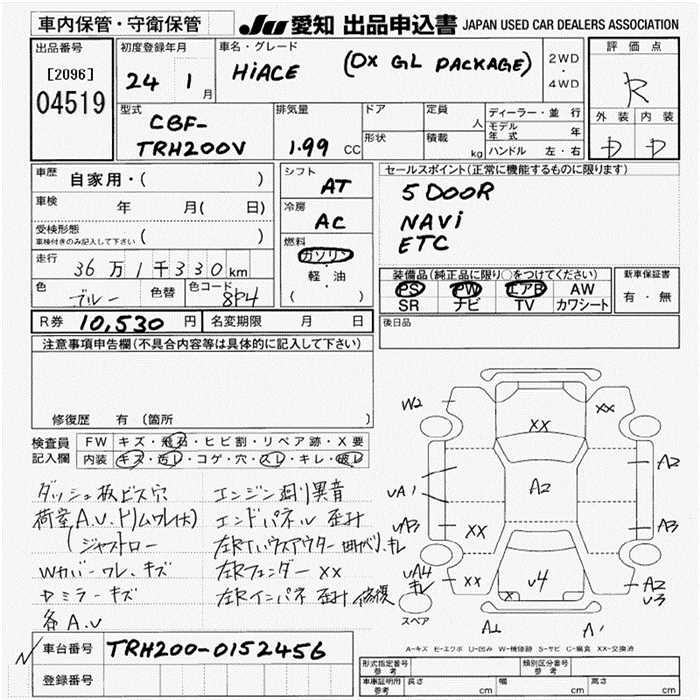 車内保管・守衛保管
JU 愛知 出品申込書 JAPAN USED CAR DEALERS ASSOCIATION
出品番号
[2096]
04519
初度登録年月
24 1月
車名・グレード
HiACE (DX GL PACKAGE)
2WD
・
4WD
評価点
R
外装 内装
D D
型式
CBF-
TRH200V
排気量
1.99 CC
ドア
形状
定員 人
積載 kg
ディーラー・並行
モデル年式 年
ハンドル 左・右
車歴 自家用・( )
車検 年 月( 日)
受検形態
車検付きのみ記入して下さい ( )
走行 36万1千330km
色 ブルー 色替 色コード 8P4
シフト AT
冷房 AC
燃料
ガソリン
・
軽・油
( )
セールスポイント(正常に機能するものに限ります)
5DOOR
NAVi
ETC
装備品(純正品に限り○をつけてください)
PS PW エアB AW
SR ナビ TV カワシート
新車保証書
有・無
R券 10,530円 名変期限 月 日
後日品
注意事項申告欄(不具合内容等は具体的に記入して下さい)
修復歴 有 (箇所 )
検査員記入欄
FW キズ・飛石・ヒビ割・リペア跡・X要
内装 キズ・汚レ・コゲ・穴・スレ・キレ・破レ
ダッシュ板ビス穴
荷室A.U.トリムワレ(大)
(ジャストロー
Wカバーワレ、キズ
ドミラーキズ
各A.U
エンジン廻り異音
エンドパネル 歪ミ
左Rフェンダー XX
左Rインパネ 歪ミ 修復
W2
XX
XX
A2
A2
UA1
UA3
XX
A3
UA4
キレ
XX
X
U4
A2
U3
スペア
A1
A1
A-キズ E-エクボ U-凹み W-補修跡 S-サビ C-腐食 XX-交換済
車台番号 TRH200-0152456
登録番号
形式指定番号
参考
類別区分番号
参考
車庫証明用
参考
長さ cm
幅 cm
高さ cm